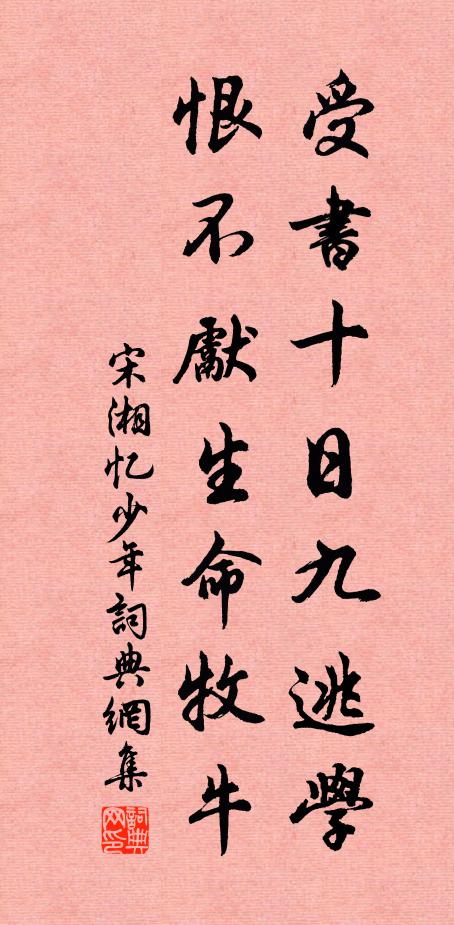 受書十日九逃學
恨不獻生命牧牛
宋湘忆少年詞典網集
詞典網印